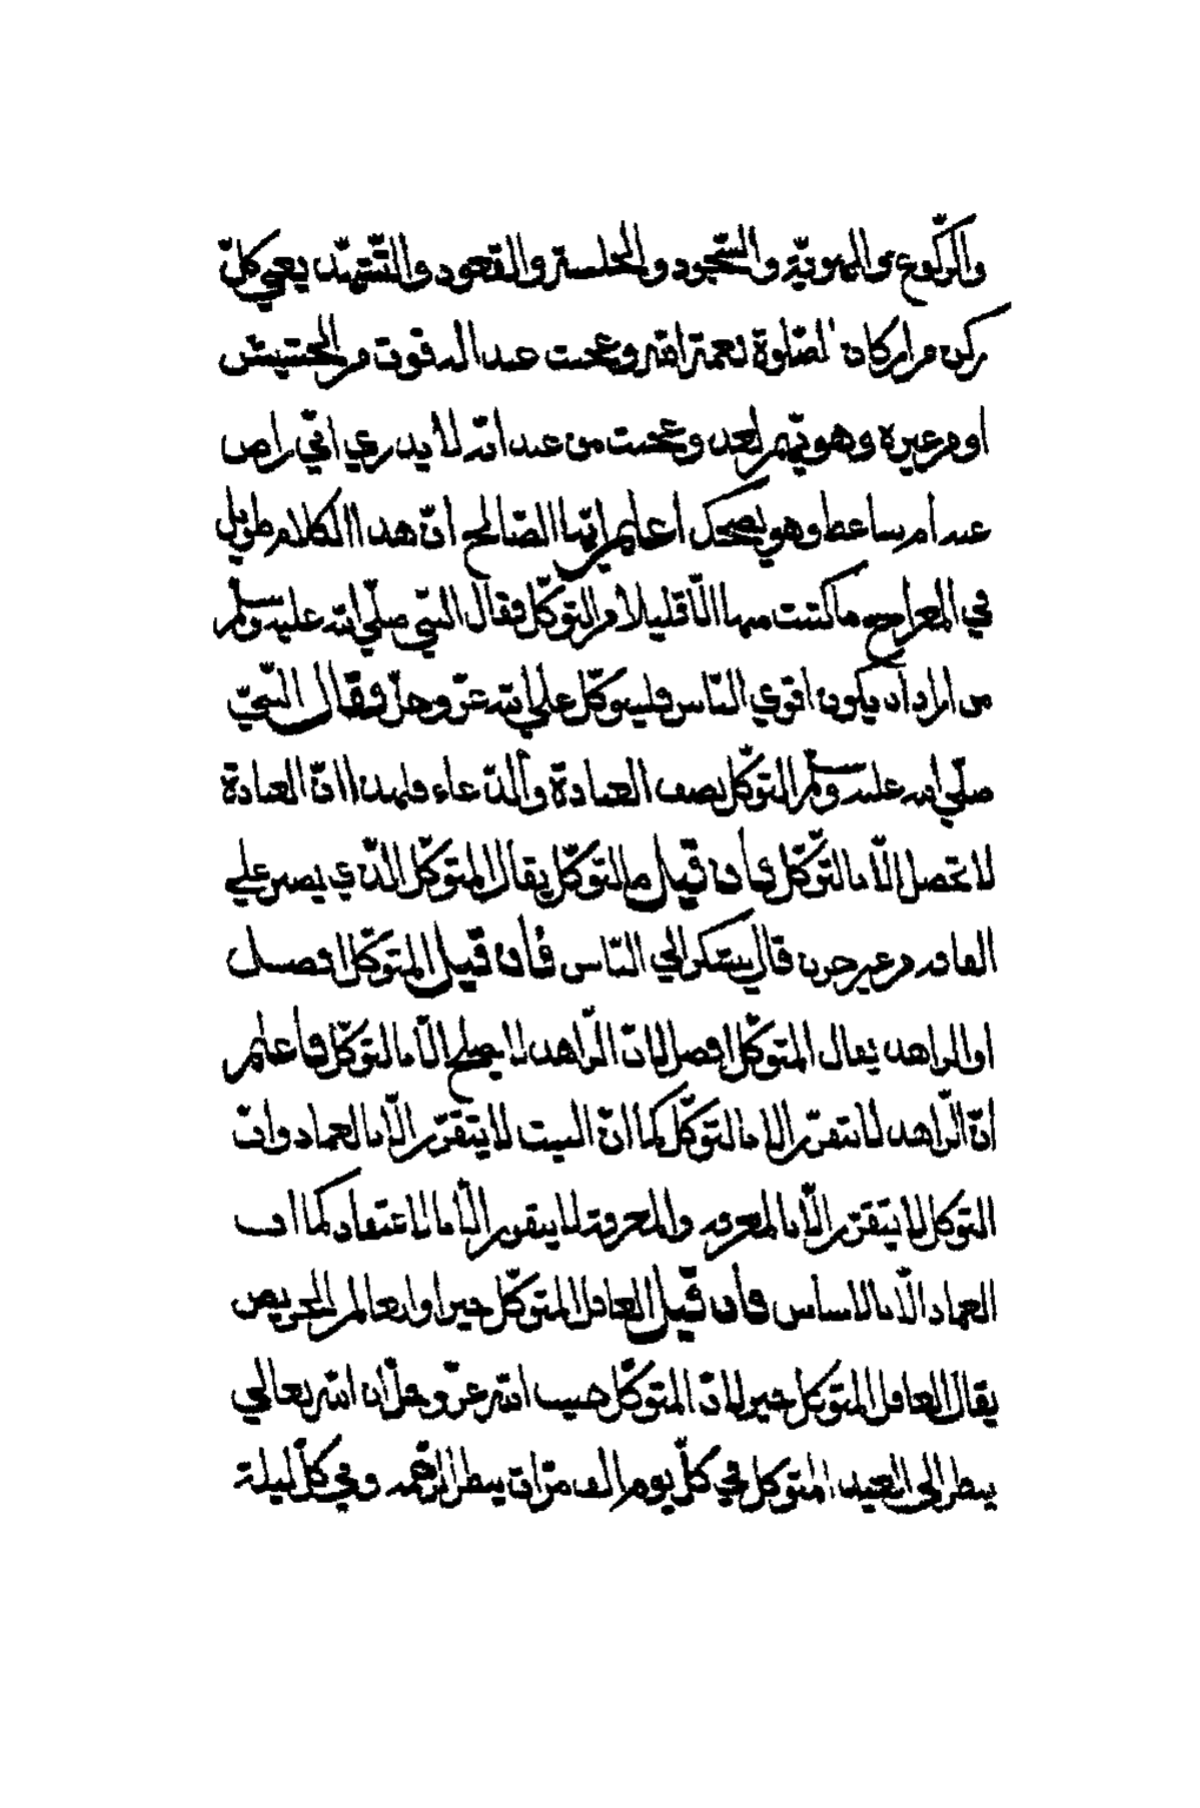 والركوع والهوية والسجود والجلسة والقعود والتشهد يعني كل
ركن من اركان الصلوة نعمة افة وعجبت عبد اله قوت من الحشيش
او من غيره وهو يهم لغد وعجبت من عبد انه لا يدري اني راض
عنه أم ساخط وهو يضحك اعلم ايها الصالح ان هذا الكلام طويل
في المعراج ما كتبت منها الا قليلا من التوكل فقال النبي صلي الله عليه وسلم
من اراد ان يكون اقوي الناس فليتوكل علي الله عز وجل وقال النبي
صلي الله عليه وسلم التوكل نصف العبادة والدعاء فلهذا ان العبادة
لا تحصل الا بالتوكل فان قيل ما التوكل يقال المتوكل الذي يصبر علي
الفاقه من غير حزن قال يشكر الي الناس فان قيل المتوكل افضل
او الزاهد يقال المتوكل افضل لان الزاهد لا يصلح الا بالتوكل فاعلم
ان الزاهد لا يتقرر الا بالتوكل كما ان البيت لا يتقرر الا بالعماد وان
التوكل لا يتقرر الا بالمعرفه والمعرفة لا يتقرر الا بالاعتقاد كما ان
العماد الا بالاساس فان قيل العاقل المتوكل خير او العالم الحريص
يقال العاقل المتوكل خير لان المتوكل حبيب الله عز وجل ان الله تعالي
ينظر الي العبد المتوكل في كل يوم الف مرات بنظر الرحمه وفي كل ليلة